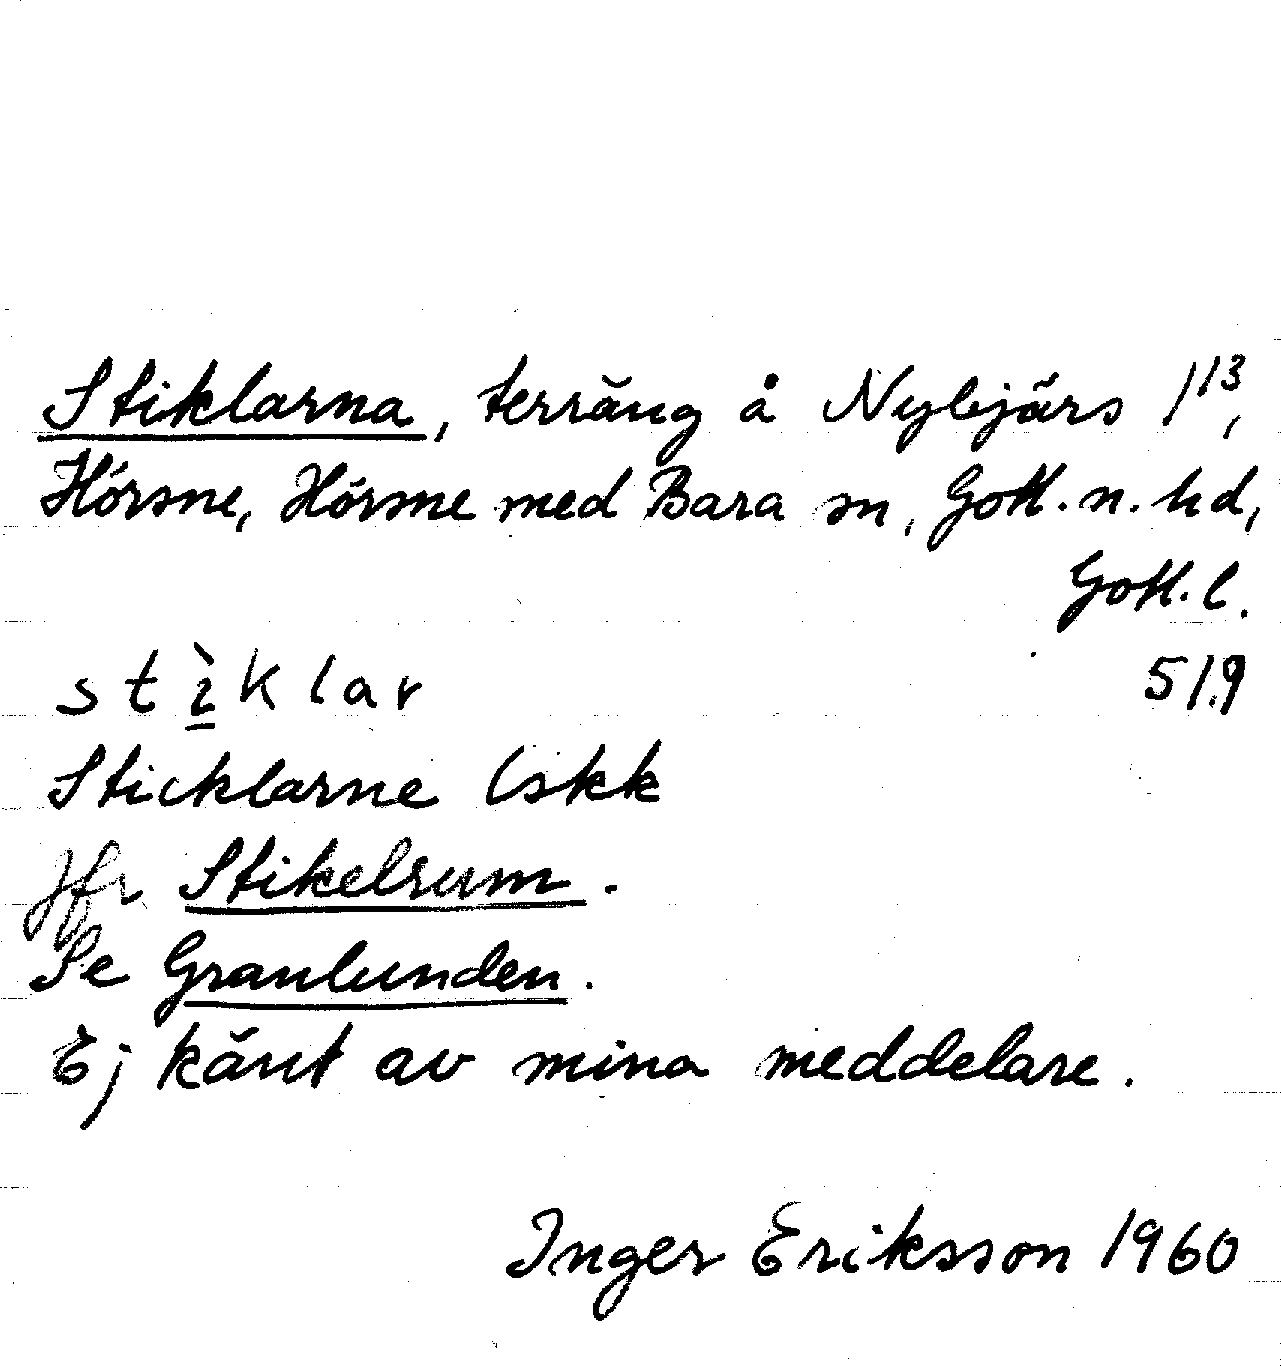 Stiklarna, terräng å Nybjärs 1¹³,
Hörsne, Hörsne med Bara sn, Gotl. n. hd,
Gotl. l.
stì̱klar 519
Sticklarne Lskk
Jfr Stikelrum.
Se Granlunden.
Ej känt av mina meddelare.
Inger Eriksson 1960